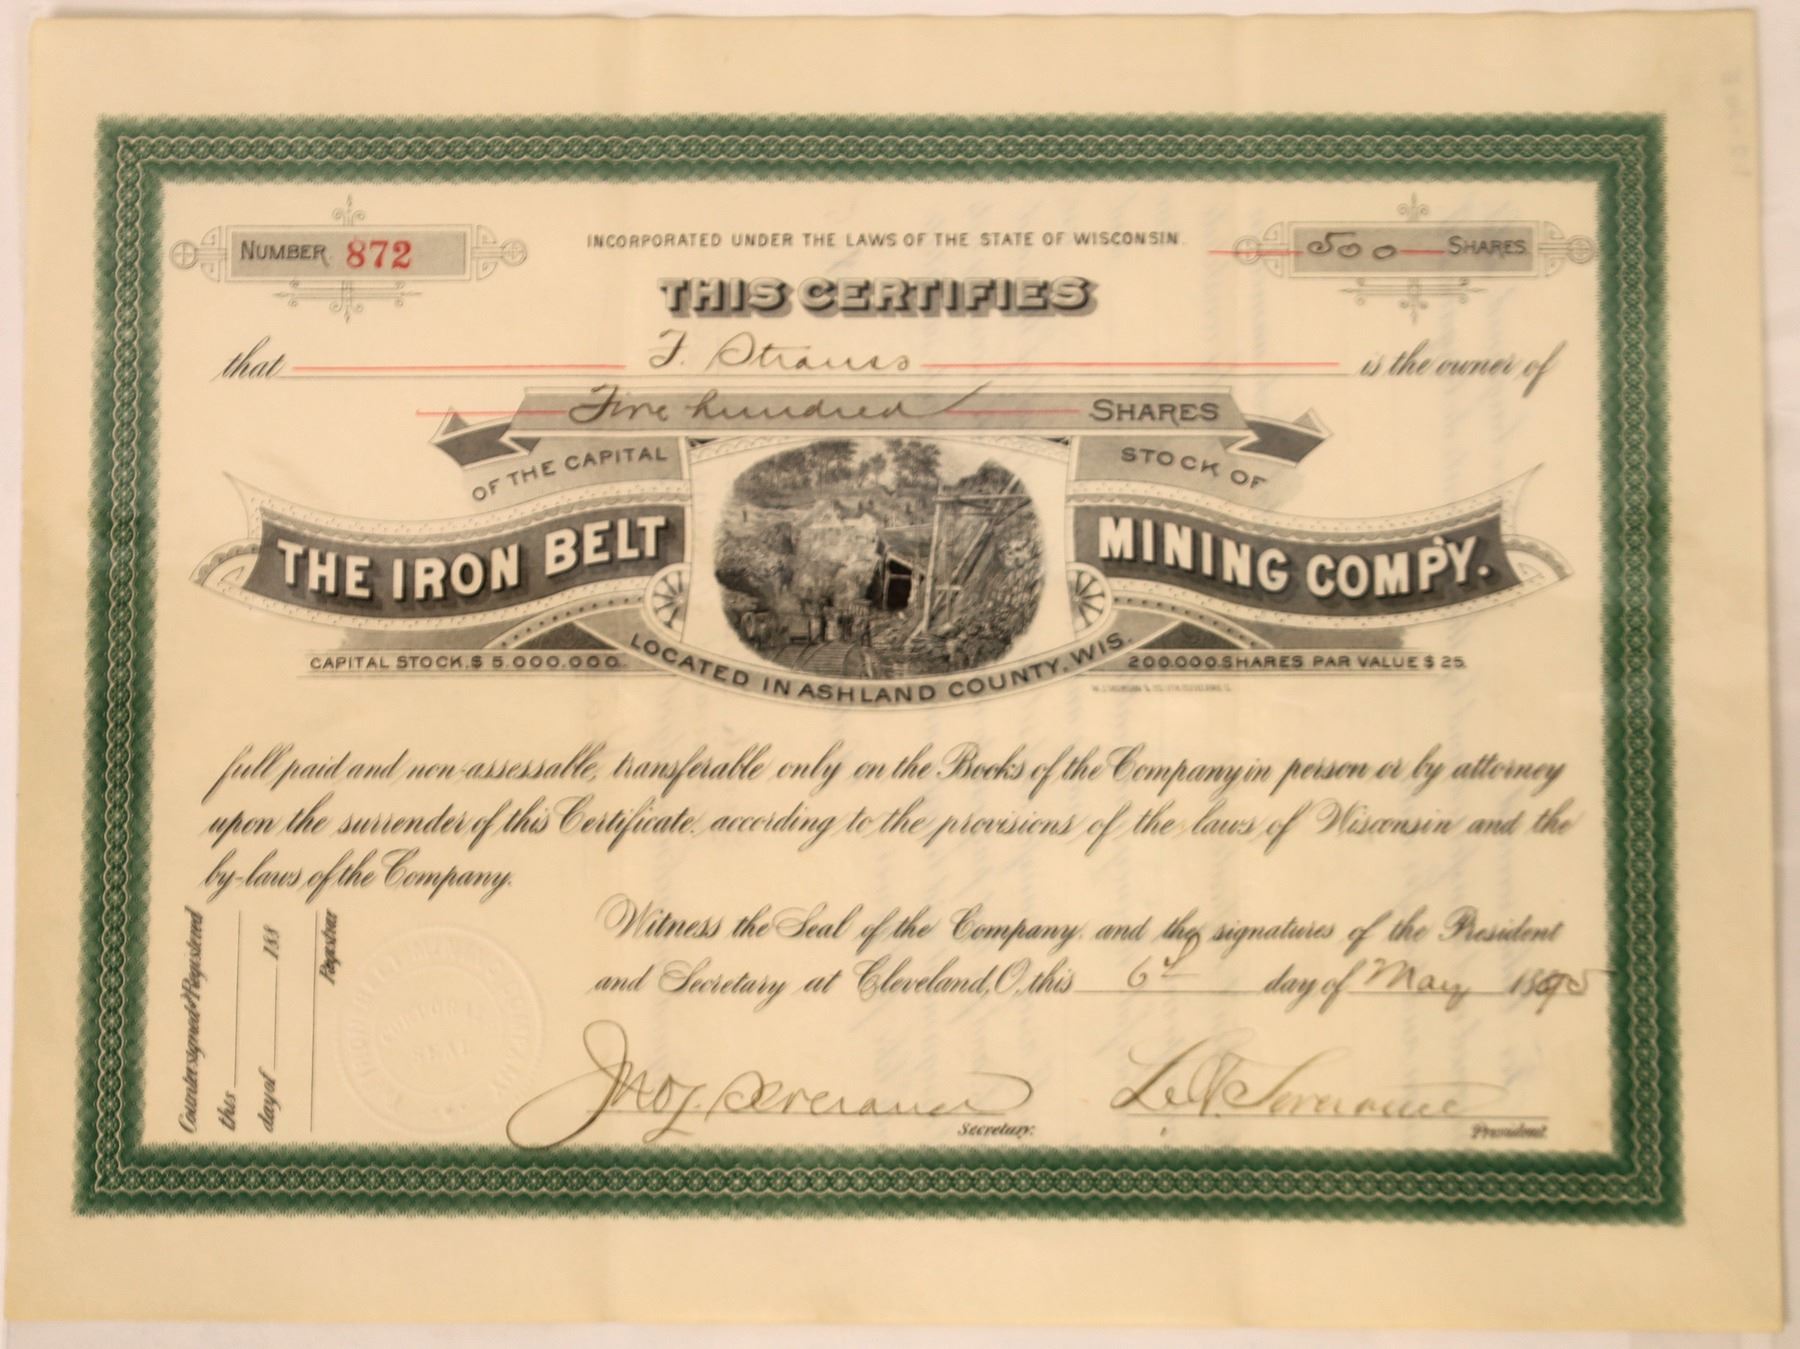 NUMBER 872
INCORPORATED UNDER THE LAWS OF THE STATE OF WISCONSIN.
500 SHARES
THIS CERTIFIES
that F. Strauss is the owner of
Five hundred SHARES
OF THE CAPITAL STOCK OF
THE IRON BELT MINING COMP'Y.
LOCATED IN ASHLAND COUNTY, WIS.
CAPITAL STOCK, $5,000,000.
200,000 SHARES PAR VALUE $25.
full paid and non-assessable, transferable only on the Books of the Company in person or by attorney
upon the surrender of this Certificate, according to the provisions of the laws of Wisconsin and the
by-laws of the Company.
Witness the Seal of the Company, and the signatures of the President
and Secretary at Cleveland, O, this 6th day of May 1895
Countersigned & Registered
this
day of 188
Registrar
CORPORATE
SEAL
Jno. J. Severance
Secretary.
Severance
President.